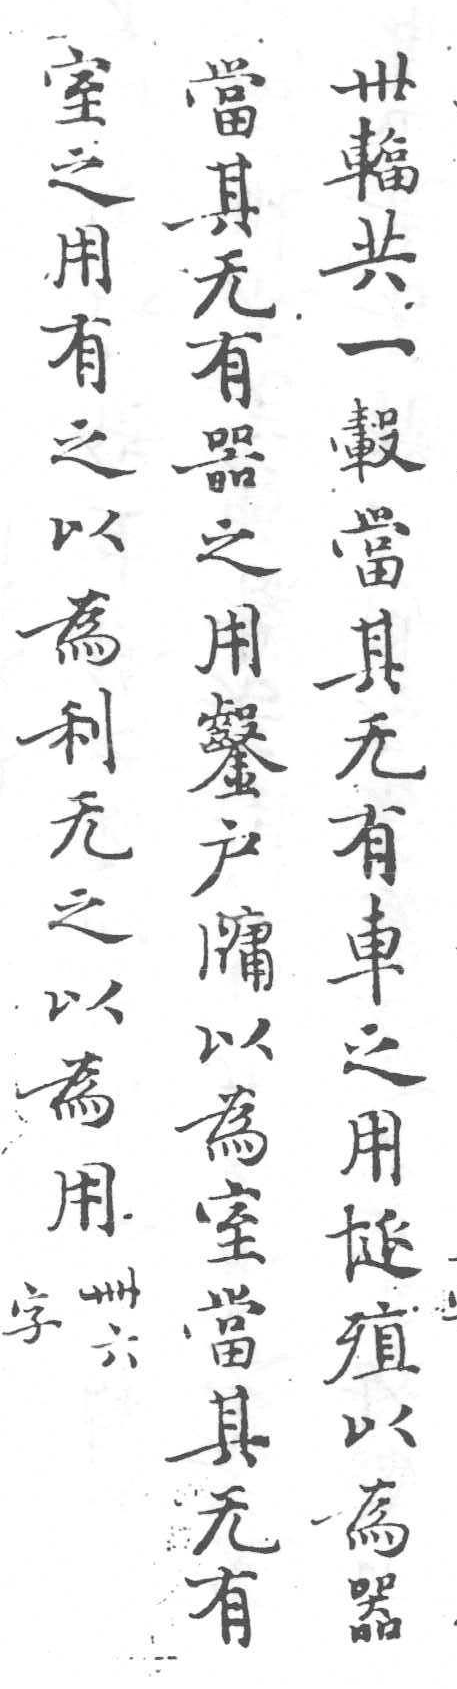 卅輻共一轂當其无有車之用埏殖以爲器
當其无有器之用鑿户牖以爲室當其无有
室之用有之以爲利无之以爲用
卌六
字